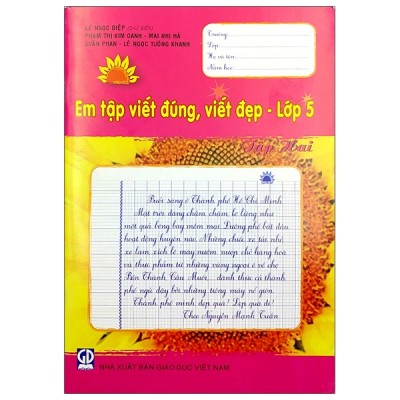 LÊ NGỌC ĐIỆP (CHỦ BIÊN)
PHẠM THỊ KIM OANH - MAI NHỊ HÀ
XUÂN PHAN - LÊ NGỌC TƯỜNG KHANH
Trường:
Lớp:
Họ và tên:
Năm học:
Em tập viết đúng, viết đẹp - Lớp 5
Tập Hai
Buổi sáng ở Thành phố Hồ Chí Minh
Mặt trời đang chầm chậm, lơ lửng như
một quả bóng bay mềm mại. Đường phố bắt đầu
hoạt động huyên náo. Những chiếc xe tải nhỏ
xe lam, xích lô máy nườm nượp chở hàng hóa
và thực phẩm từ những vùng ngoại ô về chợ
Bến Thành, Cầu Muối, ... đánh thức cả thành
phố ngủ dậy bởi những tiếng máy nổ giòn.
Thành phố mình đẹp quá! Đẹp quá đi!
Theo Nguyễn Mạnh Tuấn
GD
NHÀ XUẤT BẢN GIÁO DỤC VIỆT NAM